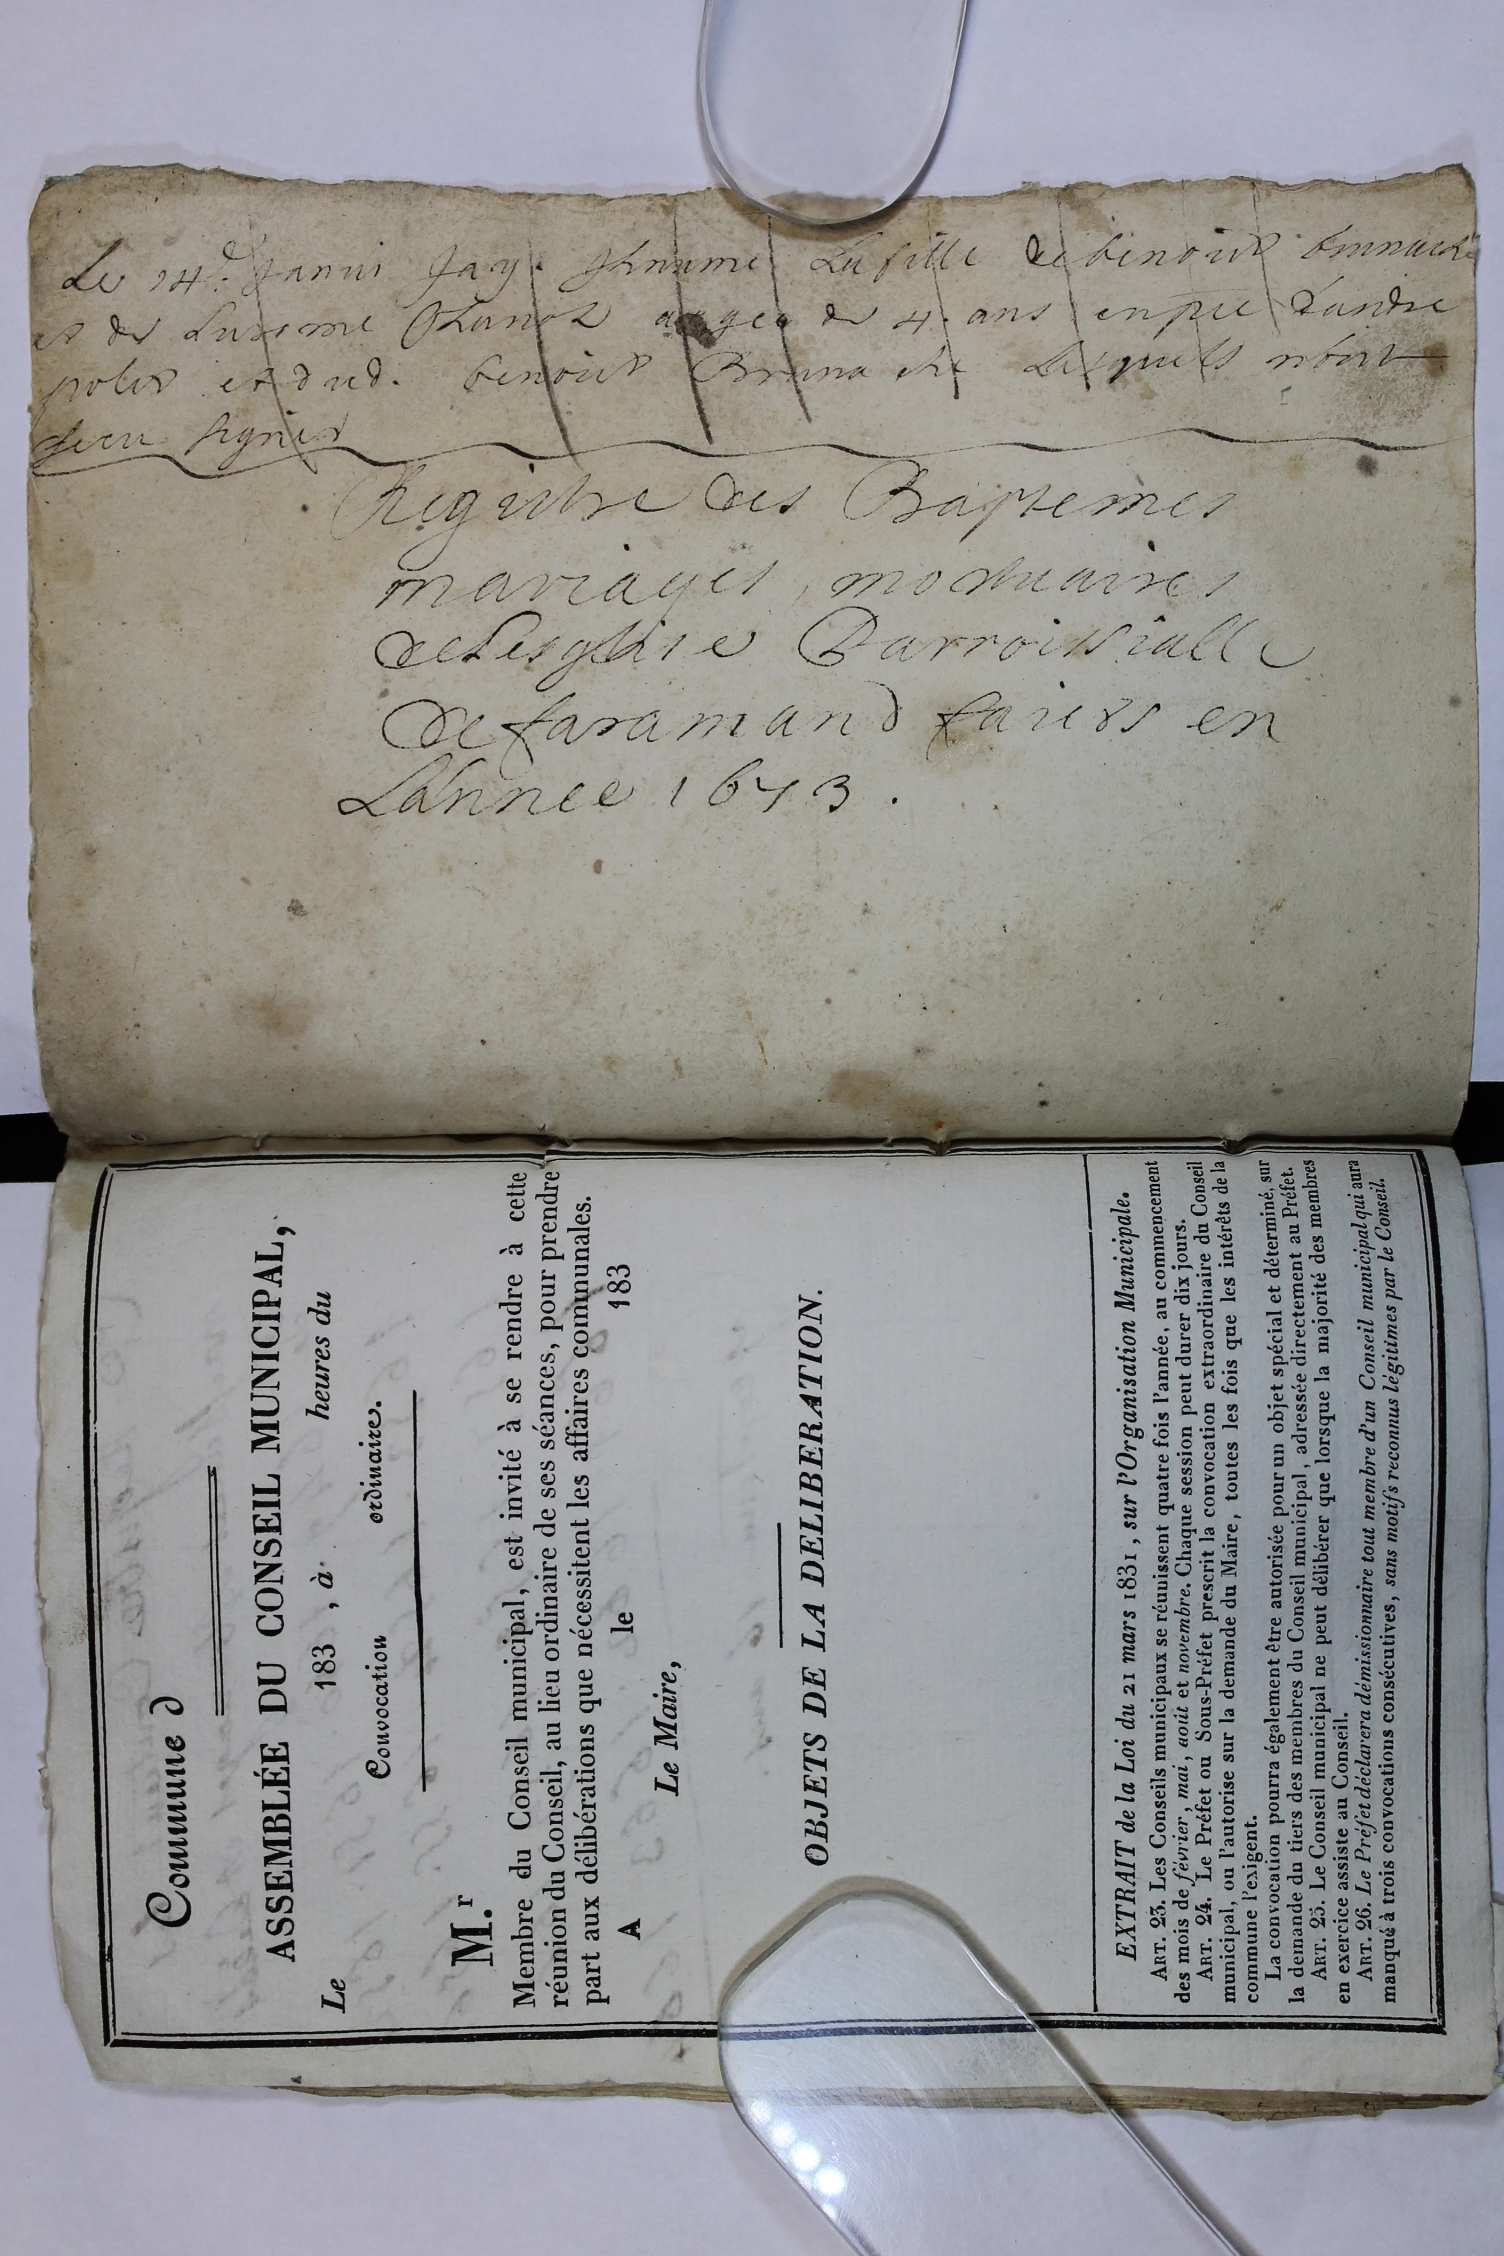 Le 14.e Janvi Jay. Inhumé La fille de benoist brunache
et de Lu Chanot aagee de 4. ans en pre d'andre
polos et dud. benoist Brunache Lesquels n'ont
sceu signer
Registre des Baptemes
mariages, mortuaires
de Lesglise Parroissialle
de faramand faicts en
Lannee 1673.
Commune d
ASSEMBLÉE DU CONSEIL MUNICIPAL,
Le 183 , à heures du
Convocation ordinaire.
M.r
Membre du Conseil municipal, est invité à se rendre à cette
réunion du Conseil, au lieu ordinaire de ses séances, pour prendre
part aux délibérations que nécessitent les affaires communales.
A le 183
Le Maire,
OBJETS DE LA DELIBERATION.
EXTRAIT de la Loi du 21 mars 1831, sur l'Organisation Municipale.
ART. 23. Les Conseils municipaux se réunissent quatre fois l'année, au commencement
des mois de février, mai, août et novembre. Chaque session peut durer dix jours.
ART. 24. Le Préfet ou Sous-Préfet prescrit la convocation extraordinaire du Conseil
municipal, ou l'autorise sur la demande du Maire, toutes les fois que les intérêts de la
commune l'exigent.
La convocation pourra également être autorisée pour un objet spécial et déterminé, sur
la demande du tiers des membres du Conseil municipal, adressée directement au Préfet.
ART. 25. Le Conseil municipal ne peut délibérer que lorsque la majorité des membres
en exercice assiste au Conseil.
ART. 26. Le Préfet déclarera démissionnaire tout membre d'un Conseil municipal qui aura
manqué à trois convocations consécutives, sans motifs reconnus légitimes par le Conseil.